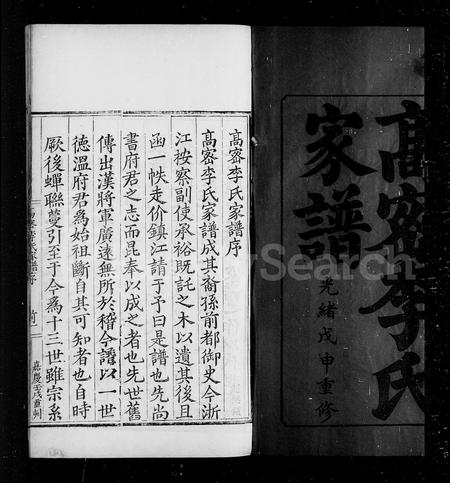 高密李氏
家譜
光緒戊申重修
高密李氏家譜序
高密李氏家譜成其裔孫前都御史今浙
江按察副使承裕既託之木以遺其後且
函一帙走价鎮江請于予曰是譜也先尚
書府君之志而昆奉以成之者也先世舊
傳出漢將軍廣遠無所於稽今譜以一世
徳溫府君為始祖斷自其可知者也自時
厥後蟬聯蔓引至于今為十三世雖宗系
高密李氏家譜序
前一
嘉慶壬戌重刊